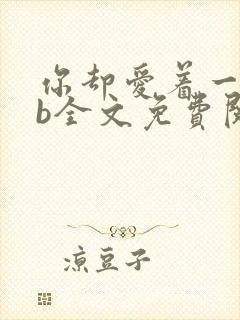 你却爱着一
b全文免費閱
凉豆子